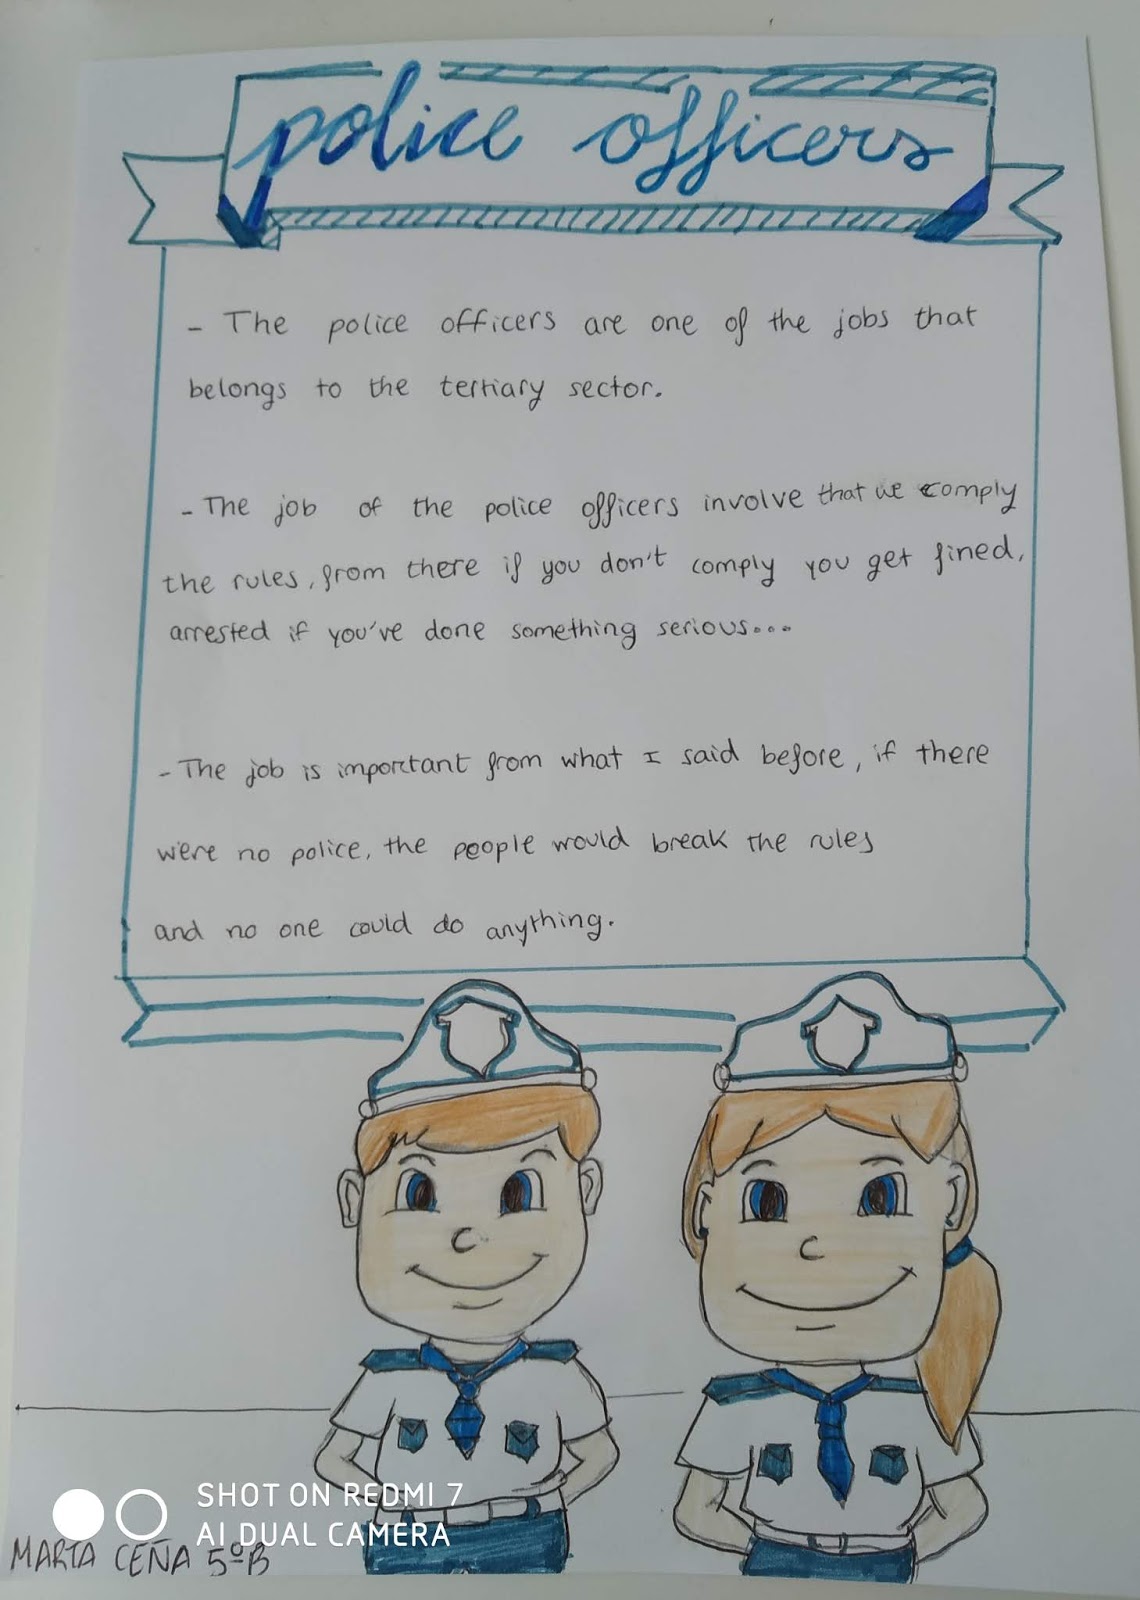 police officers
- The police officers are one of the jobs that
belongs to the tertiary sector.
- The job of the police officers involve that we comply
the rules, from there if you don't comply you get fined,
arrested if you've done something serious...
- The job is important from what I said before, if there
were no police, the people would break the rules
and no one could do anything.
SHOT ON REDMI 7
AI DUAL CAMERA
MARTA CEÑA 5ºB